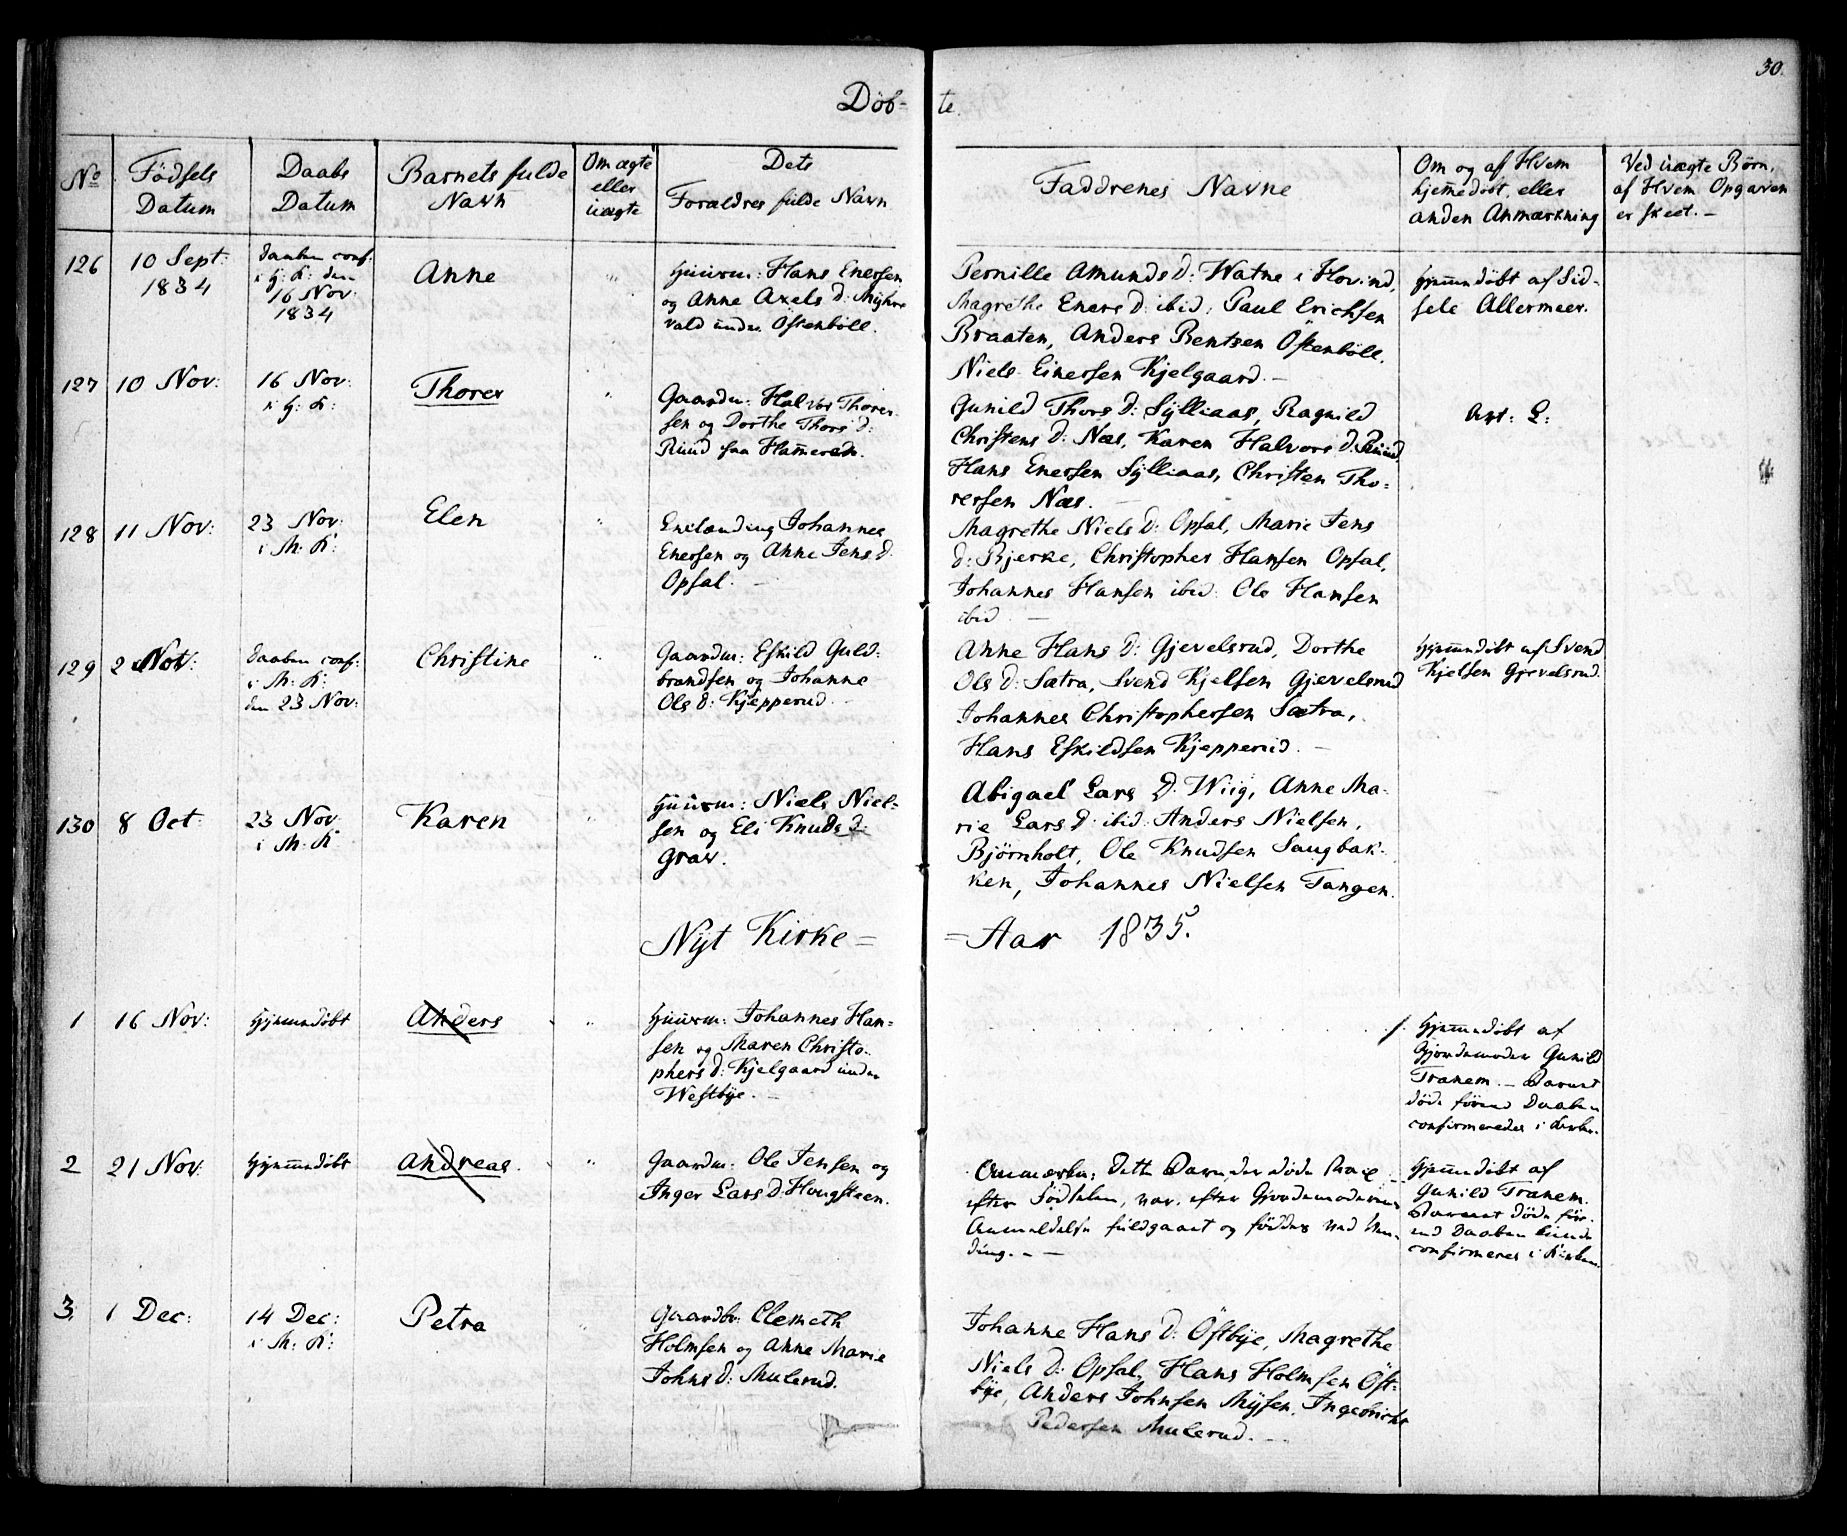 30.
Döb- te.
No
Födsels Datum
Daabs Datum
Barnets fulde Navn
Om ægte eller uægte
Dets Forældres fulde Navn
Faddrenes Navne
Om og af Hvem hjemedöbt, eller anden Anmærkning
Ved uægte Börn, af Hvem Opgaven er skeet.-
126
10 Sept:
1834
Daaben conf.
i H: K: den
16 Nov:
1834
Anne
Huusm: Hans Enersen
og Anne Axels D:
vald under Östenböll.
Pernille Amunds D: Watne i Hovind,
Magrethe Eners D: ibid: Paul Erichsen
Braaten, Anders Bentsen Östenböll,
Niels Einersen Kjelgaard.-
Hjemmedöbt af Sid-
sele Allermeer.
127
10 Nov:
16 Nov:
i H: K:
Thorer
Gaardm: Halvor Thorer-
sen og Dorthe Thors D:
Ruud paa Hammeren.
Gunild Thors D: Sylliaas, Ragnild
Christens D: Næs, Karen Halvors D: Ruud,
Hans Enersen Sylliaas, Christen Tho-
rersen Næs.
Att: L:
128
11 Nov:
23 Nov:
i M: K:
Elen
Johannes
Enersen og Anne Jens D:
Opsal.
Magrethe Niels D: Opsal, Marie Jens
D: Bjerke, Christopher Hansen Opsal,
Johannes Hansen ibid: Ole Hansen
ibid
129
2 Nov:
Daaben conf:
i M: K:
den 23 Nov:
Christine
Gaardm: Eskild Guld-
brandsen og Johanne
Ols D: Kjepperud
Anne Hans D: Gjevelsrud, Dorthe
Ols D: Sætra, Svend Kjelsen Gjevelsrud
Johannes Christophersen Sætra,
Hans Eskildsen Kjepperud.-
Hjemmedöbt af Svend
Kjelsen Gjevelsrud.
130
8 Oct:
23 Nov:
i M: K:
Karen
Huusm: Niels Niel-
sen og Eli Knuds D:
Grav.
Abigael Lars D: Wiig, Anne Ma-
rie Lars D: ibid: Anders Nielsen,
Björnholt, Ole Knudsen Saugbak-
ken, Johannes Nielsen Tangen.
Nyt Kirke= =Aar 1835.
1
16 Nov:
Hjemmedöbt
Anders
Huusm: Johannes Han-
sen og Maren Christo-
phers D: Kjelgaard under
Westbye.
Hjemmedöbt af
Gjordemoder Gunild
Tranem. - Barnet
döde förend Daaben
confirmeredes i Kirken.
2
21 Nov:
Hjemmedöbt
Andreas.
Gaardm: Ole Jensen og
Inger Lars D: Hougsteen.
Anmærkn: Dette Barn, der döde strax
efter Födselen, var, efter Gjordemoderens
Anmeldelse fuldgaaet og föddes ved Ven-
ding.-
Hjemmedöbt af
Gunild Tranem.
Barnet döde för-
end Daaben kunde
confirmeres i Kirken.
3
1 Dec:
14 Dec:
i M: K:
Petra
Gaardbr: Clemeth
Holmsen og Anne Marie
Johns D: Mulerud.
Johanne Hans D: Östbye, Magrethe
Niels D: Opsal, Hans Holmsen Öst-
bye, Anders Johnsen Mysen, Ingebricht
Pedersen Mulerud.